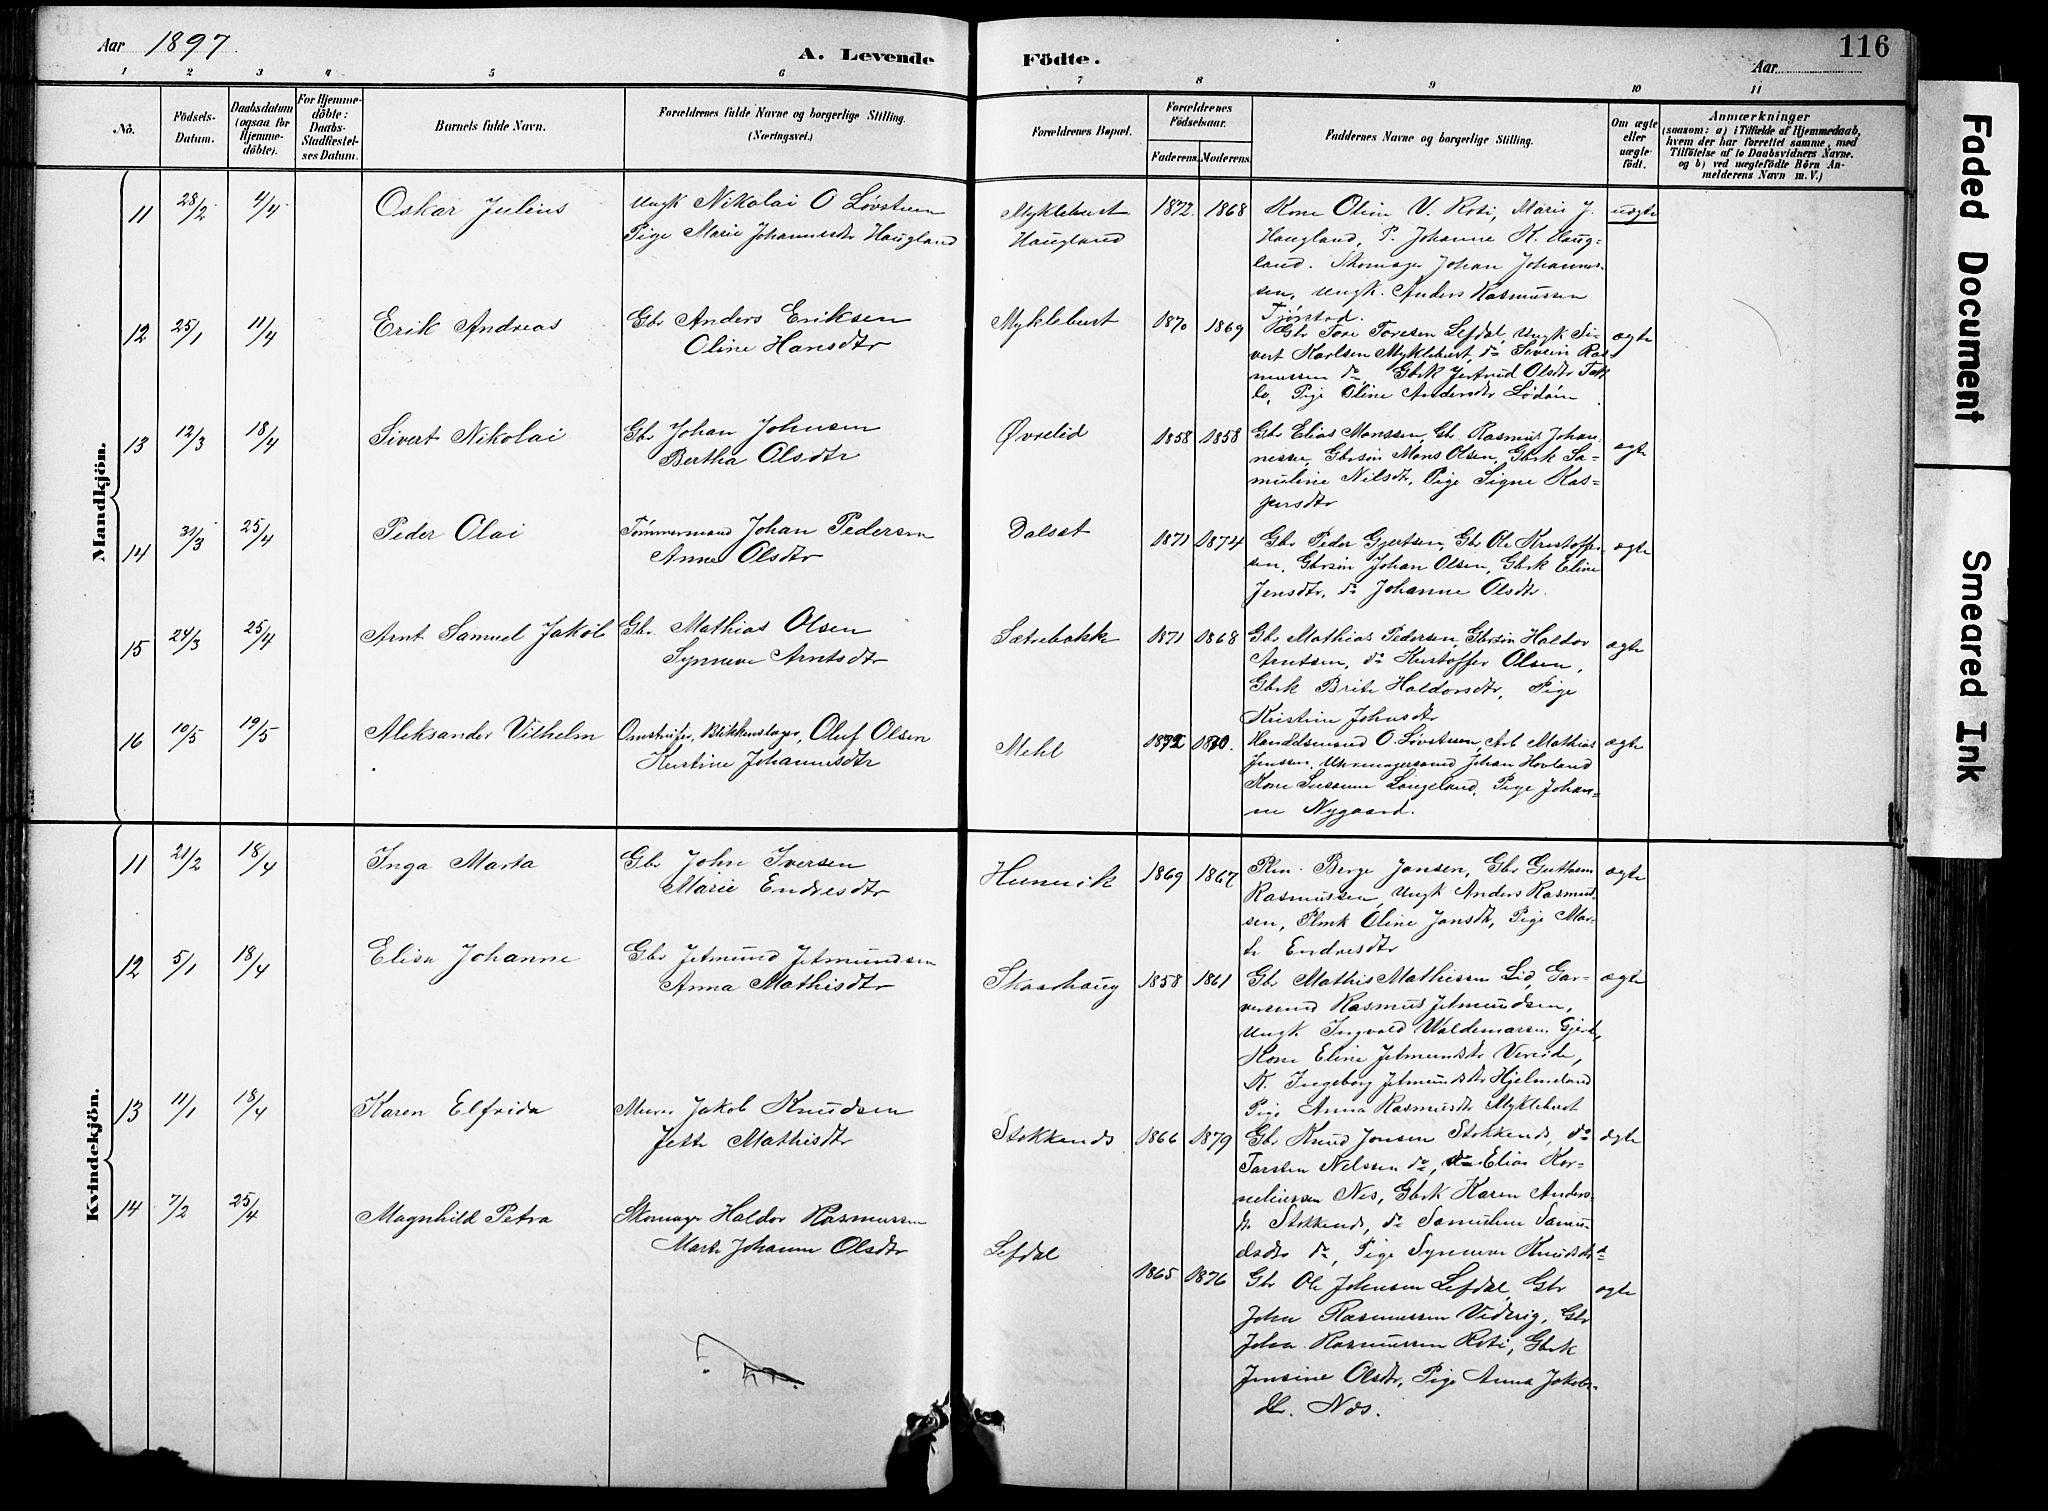 Aar 1897.
A. Levende
Födte.
Aar
116
1 2 3 4 5 6 7 8 9 10 11
No.
Födsels-Datum.
Daabsdatum (ogsaa for Hjemme-döbte).
For Hjemme-döbte: Daabs-Stadfæstel-ses Datum.
Barnets fulde Navn.
Forældrenes fulde Navne og borgerlige Stilling. (Næringsvei.)
Forældrenes Bopæl.
Forældrenes Födselsaar.
Faderens. Moderens.
Faddernes Navne og borgerlige Stilling.
Om ægte eller uægte født.
Anmærkninger
(saasom: a) i Tilfælde af Hjemmedaab, hvem der har forrettet samme, med Tilföielse af to Daabsvidners Navne, og b) ved uægtefödte Börn An-melderens Navn m. V.)
Mandkjön.
11 28/2 4/4 Oskar Julius
Ungk Nikolai O Løvstuen
Pige Marie Johannesdtr Haugland
Myklebust
Haugland
1872. 1868
Kone Oline V. Roti, Marie J.
Haugland, P. Johanne K. Haug-
land. Skomager Johan Johannes-
sen, Ungk. Anders Rasmussen
uægte
12 25/1 11/4 Erik Andreas
Gbr Anders Eriksen
Oline Hansdtr
Myklebust
1870 1869
Gbr Tore Toresen Lefdal, Ungk Si-
vert Karlsen Myklebust, do Severin Ras-
mussen do, Gbrk Jertrud Olsdtr
Pige Oline Andersdtr
ægte
13 12/3 18/4 Sivert Nikolai
Gbr Johan Johnsen
Bertha Olsdtr
Øvrelid
1858 1858
Gbr Elias Monssen, Gbr Rasmus Johan-
nessen, Gbrsøn Mons Olsen, Gbrk Sa-
muline Nilsdtr, Pige Signe Kas-
persdtr
ægte
14 31/3 25/4 Peder Olai
Tømmermand Johan Pedersen
Anne Olsdtr
Dalset
1871 1874
Gbr Peder Gjertsen, Gbr Ole Kristoffer-
sen, Gbrsøn Johan Olsen, Gbrk Eline
Jensdtr, do Johanne Olsdtr.
ægte
15 24/3 25/4 Arnt Samuel Jakob
Gbr. Mathias Olsen
Synneve Arntsdtr
Sætrebakk
1871 1868
Gbr Mathias Pedersen, Gbrsøn Haldor
Arntsen, do Kristoffer Olsen,
Gbrk Brite Haldorsdtr, Pige
Kristine Johnsdtr
ægte
16 10/5 19/5 Aleksander Vilhelm
Omstreifer, Blikkenslager, Oluf Olsen
Kristine Johannesdtr
Mehl
1870.
Handelsmand O. Løvstuen, Arb Mathias
Jenssen, Uhrmagersvend Johan Hovland
Kone Susanne Langeland, Pige Johan-
ne Nygaard.
ægte
Kvindekjön.
11 21/2 18/4 Inga Marta
Gbr John Iversen
Marie Endresdtr
Hunvik
1869 1867
Plm. Berge Jonsen, Gbr Guttorm
Rasmussen, Ungk Anders Rasmus-
sen, Plmk Oline Jonsdtr, Pige Mar-
te Endresdtr
ægte
12 5/1 18/4 Elisa Johanne
Gbr Jetmund Jetmundsen
Anna Mathisdtr
Skaarhaug
1858 1861
Gbr Mathis Mathissen Lid, Gar-
versvend Rasmus Jetmundsen,
Ungk Ingvald Waldemarsen
Kone Eline Jetmundsdtr Vereide,
K. Ingeborg Jetmundsdtr Hjelmeland
Pige Anna Rasmusdtr Myklebust
ægte
13 11/1 18/4 Karen Elfrida
Murer Jakob Knudsen
Jette Mathisdtr
Stokkenes
1866 1879
Gbr Knud Jonsen Stokkenes, do
Torsten Nelssen do, do Elias Kor-
neliussen Nes, Gbrk Karen Anders-
dtr Stokkenes, do Samuline Samu-
elsdtr do, Pige Synneve Knudsdtr do
ægte
14 7/2 25/4 Magnhild Petra
Skomager Haldor Rasmussen
Marte Johanne Olsdtr
Lefdal
1865 1876
Gbr Ole Johnsen Lefdal, Gbr
John Rasmussen Viderig, Gbr
Johan Rasmussen Roti, Gbrk
Jensine Olsdtr, Pige Anna Jakobs-
dtr. Nos.
ægte
Faded Document
Smeared Ink